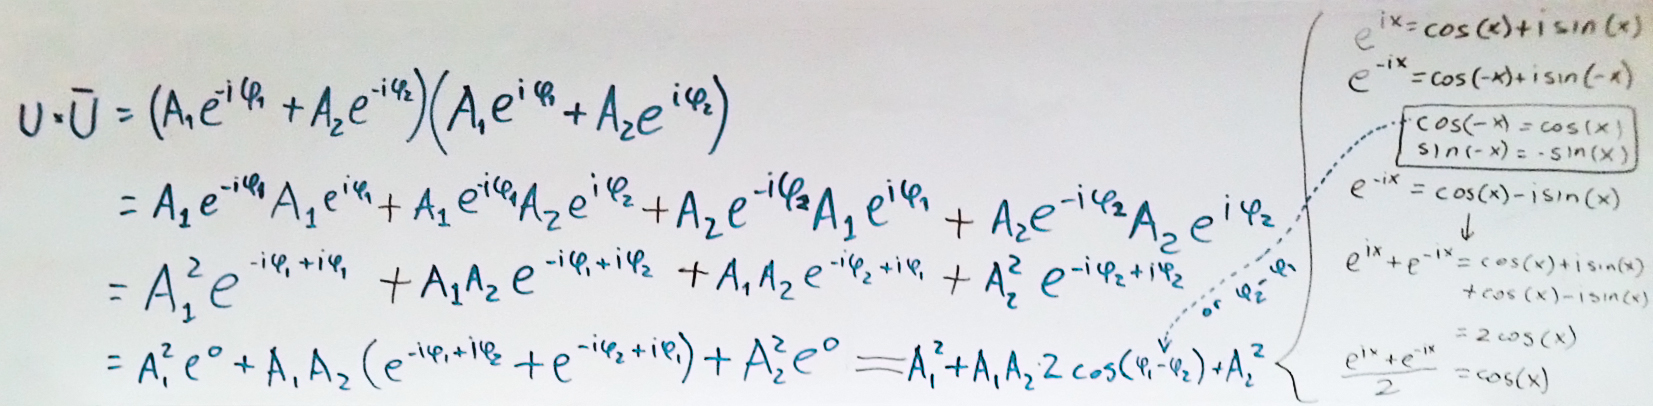 U·Ū = (A₁e^{-iφ₁} + A₂e^{-iφ₂})(A₁e^{iφ₁} + A₂e^{iφ₂})
= A₁e^{-iφ₁}A₁e^{iφ₁} + A₁e^{-iφ₁}A₂e^{iφ₂} + A₂e^{-iφ₂}A₁e^{iφ₁} + A₂e^{-iφ₂}A₂e^{iφ₂}
= A₁²e^{-iφ₁+iφ₁} + A₁A₂e^{-iφ₁+iφ₂} + A₁A₂e^{-iφ₂+iφ₁} + A₂²e^{-iφ₂+iφ₂}
= A₁²e⁰ + A₁A₂(e^{-iφ₁+iφ₂} + e^{-iφ₂+iφ₁}) + A₂²e⁰ = A₁² + A₁A₂·2cos(φ₁-φ₂) + A₂²
or φ₂-φ₁
e^{ix} = cos(x)+i sin(x)
e^{-ix} = cos(-x)+i sin(-x)
cos(-x) = cos(x)
sin(-x) = -sin(x)
e^{-ix} = cos(x)-i sin(x)
↓
e^{ix}+e^{-ix} = cos(x)+i sin(x)
+cos(x)-i sin(x)
= 2cos(x)
(e^{ix}+e^{-ix})/2 = cos(x)